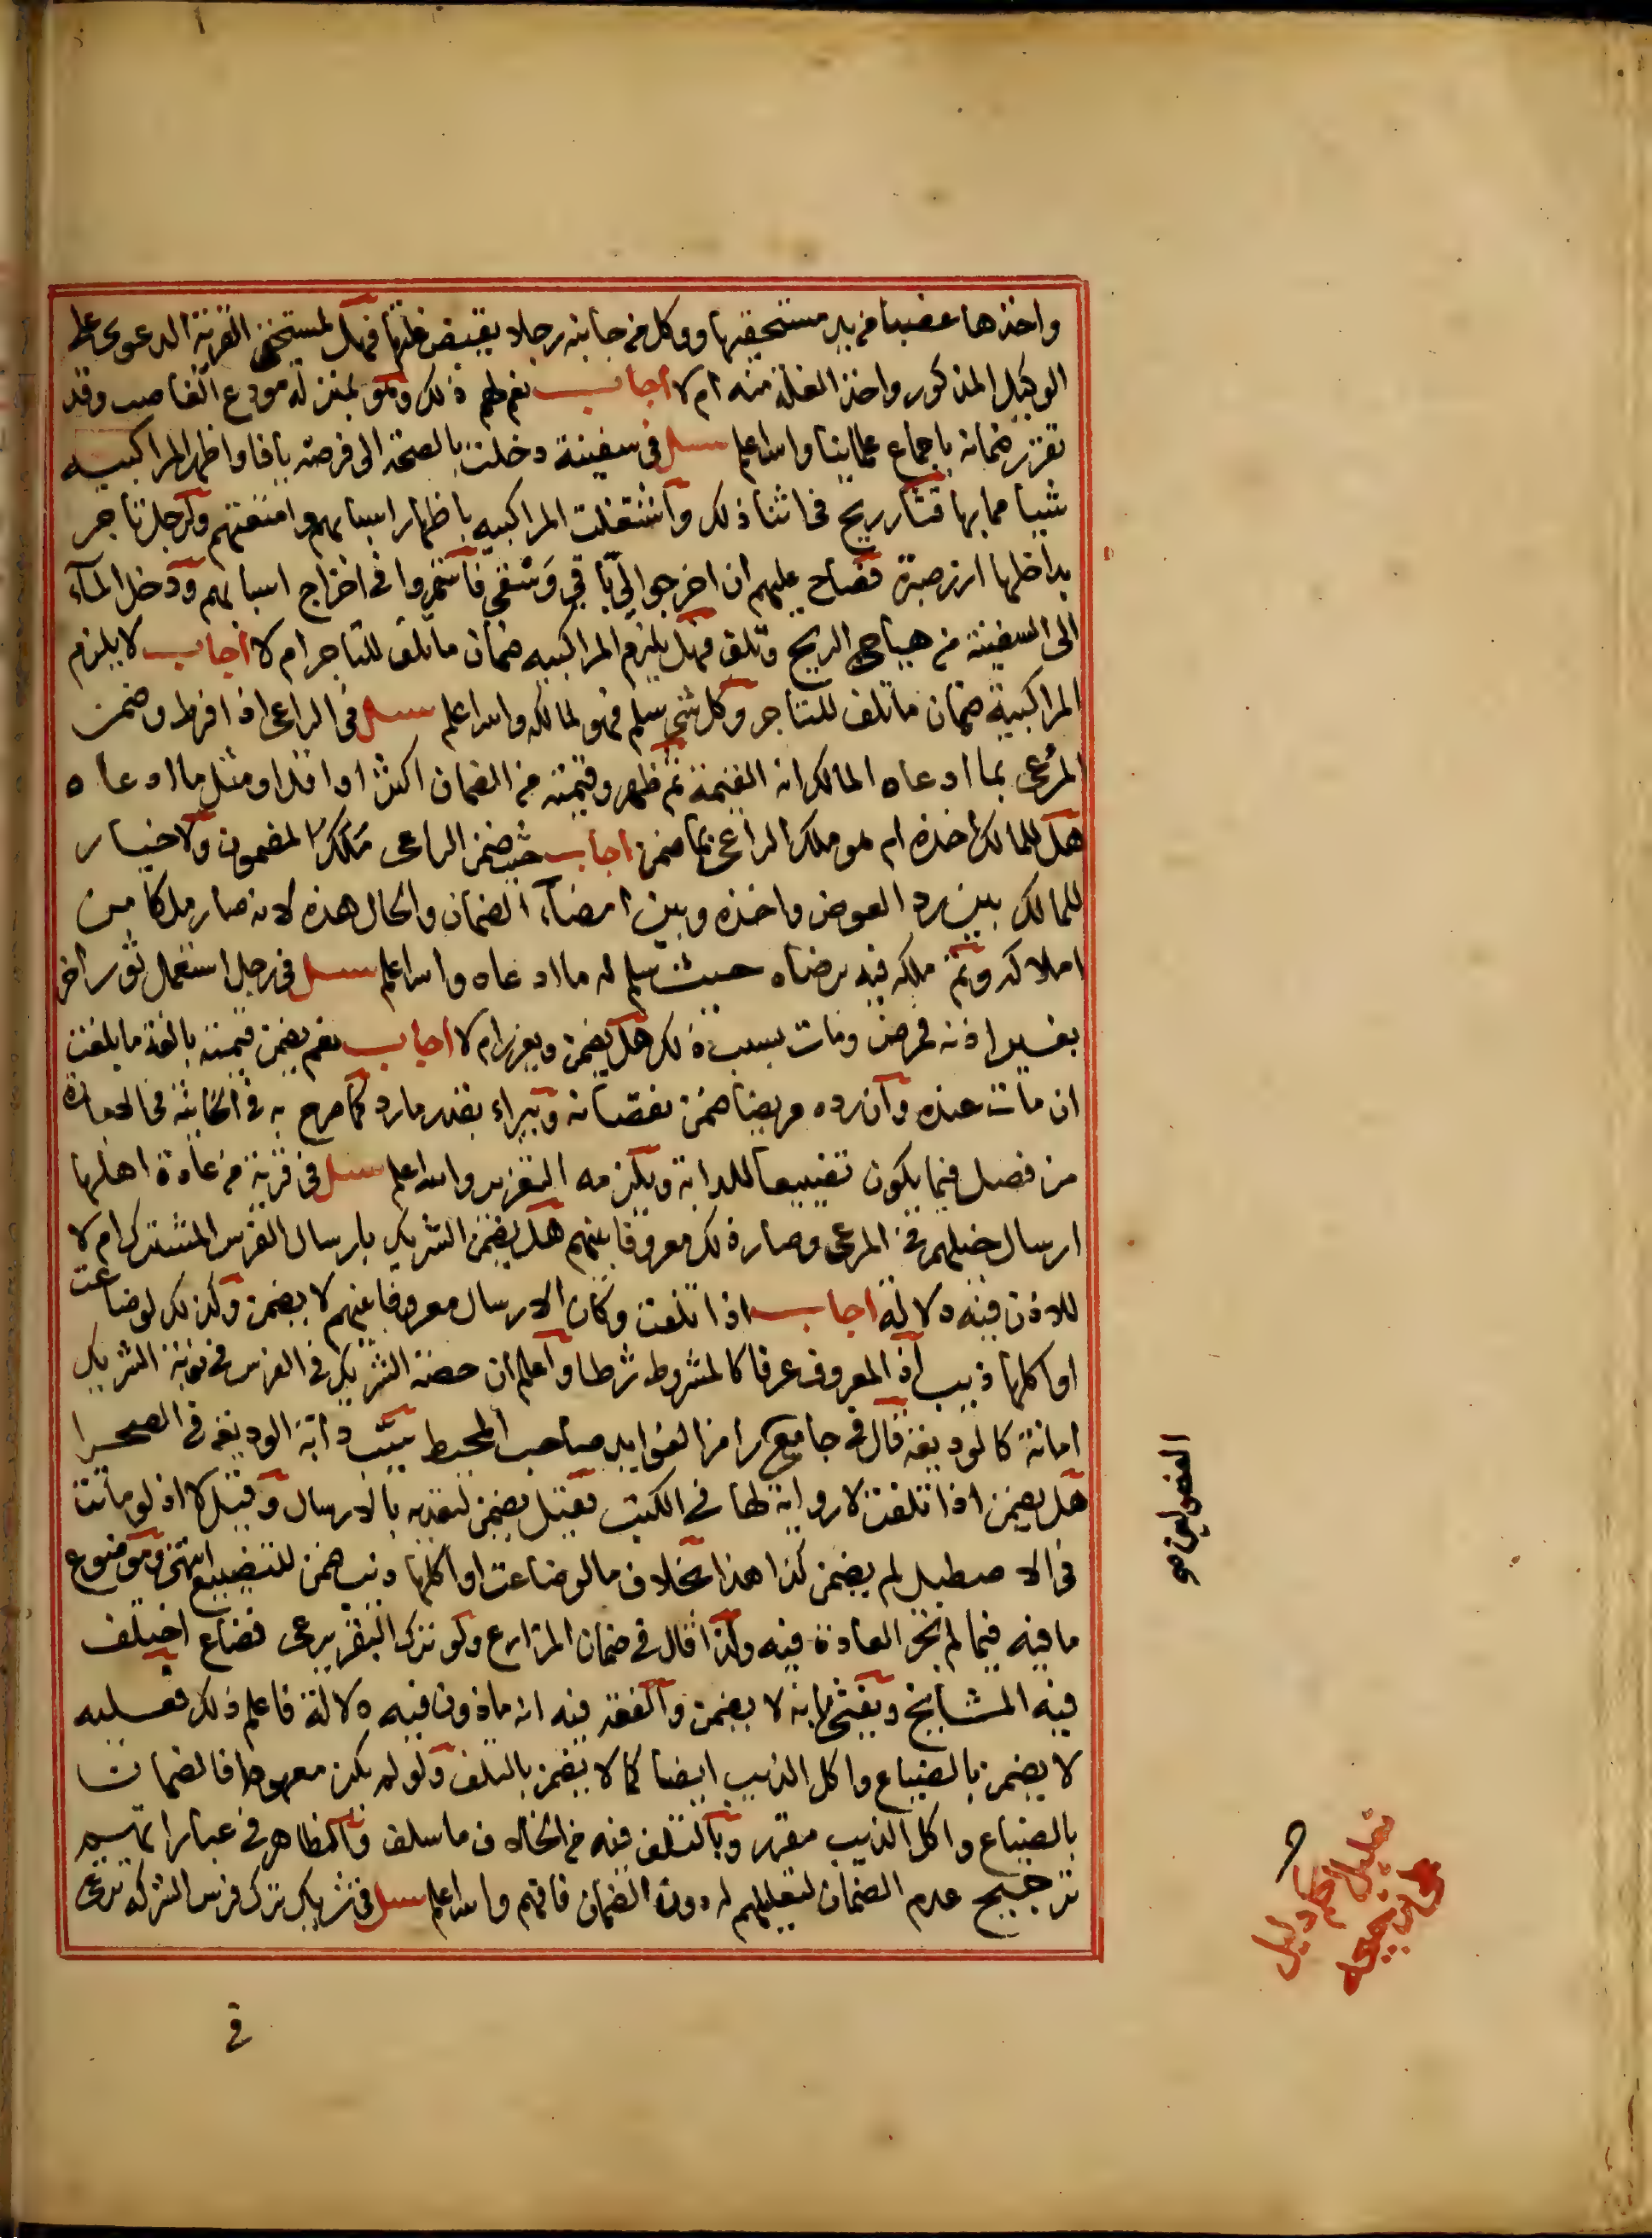 واخذها غصبا من يد مستحقيها ووكل من جانبه رجلا يقبض غلتها فهل لمستحقي القرية الدعوى على
الوكيل المذكور واخذ الغلة منه ام لا اجاب نعم لهم ذلك وهو بمنزلة مودع الغاصب وقد
تقرر ضمانه باجماع علمائنا والله اعلم سئل في سفينة دخلت بالصحة الى فرضة يافا واظهر المراكبيه
شيا مما بها فثار ريح في اثنا ذلك واشتغلت المراكبيه باظهار اسبابهم وامتعتهم ولرجل تاجر
بداخلها ارز صبرة فصاح عليهم ان اخرجوا لي باقي وشقي فاستمروا في اخراج اسبابهم ودخل الماء
الى السفينة من هياج الريح وتلف فهل يلزم المراكبيه ضمان ما تلف للتاجر ام لا اجاب لا يلزم
المراكبية ضمان ما تلف للتاجر وكل شي سلم فهو لمالكه والله اعلم سئل في الراعي اذا افرط وضمن
المرعى بما ادعاه المالك انه القيمة ثم ظهر وقيمته من الضمان اكثر او اقل او مثل ما ادعاه
هل للمالك اخذه ام هو ملك الراعي بما ضمن اجاب حيث ضمن الراعي ملك المضمون ولا خيار
للمالك بين رد العوض واخذه وبين امضاء الضمان والحال هذه لانه صار ملكا من
املاكه وتم ملكه فيه برضاه حيث سلم له ما ادعاه والله اعلم سئل في رجل استعمل ثور اخر
بغير اذنه فمرض ومات بسبب ذلك هل يضمن ويعزر ام لا اجاب نعم يضمن قيمته بالغة ما بلغت
ان مات عنده وان رده مريضا ضمن نقصانه ويبراء بقدر ما رد كما صرح به في الخانية في الاجارة
من فصل فيما يكون تضييعا للدابة ويلزمه التعزير والله اعلم سئل في قرية من عادة اهلها
ارسال خيلهم في المرعى وصار ذلك معروفا بينهم هل يضمن الشريك بارسال الفرس المشترك ام لا
للاذن فيه دلالة اجاب اذا تلفت وكان الارسال معروفا بينهم لا يضمن وكذلك لو ضاعت
او اكلها ذيب اذ المعروف عرفا كالمشروط شرطا واعلم ان حصة الشريك في الفرس في نوبة الشريك
امانة كالوديعة قال في جامع رامزا لفوايد صاحب المحيط سيب دابة الوديعة في الصحرا
هل يضمن اذا تلفت لا رواية لها في الكتب فقيل يضمن لتعديه بالارسال وقيل لا اذ لو ماتت
في الاصطبل لم يضمن كذا هذا بخلاف ما لو ضاعت او اكلها ذيب ضمن للتضييع انتهى وموضوع
ما فيه فيما لم تجر العادة فيه ولذا قال في ضمان المزارع ولو ترك البقر يرعى فضاع اختلف
فيه المشايخ ويفتى بانه لا يضمن والفقه فيه انه ماذون فيه دلالة فاعلم ذلك فعليه
لا يضمن بالضياع واكل الذيب ايضا كما لا يضمن بالتلف ولو لم يكن معهودا فالضمان
بالضياع واكل الذيب مقرر وبالتلف فيه من الخلاف ما سلف والظاهر في عباراتهم
ترجيح عدم الضمان لتعليلهم له دون الضمان فافهم والله اعلم سئل في شريك ترك فرس الشركة ترعى
في
الفصولين صح
تعليل الحكم دليل
على ترجيحه